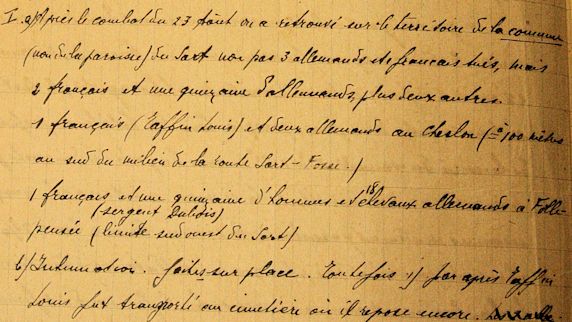 I. a) Après le combat du 23 août on a retrouvé sur le territoire de la commune
(non de la paroisse) du Sart non pas 3 allemands et français tués, mais
2 français et une quinzaine d'allemands, plus deux autres.
1 français (Taffin Louis) et deux allemands au Cheslon (= à 100 mètres
au sud du milieu de la route Sart-Fosse.)
1 français et une quinzaine d'hommes et 18 chevaux allemands à Folle-
(sergent Dubois)
pensée (limite sud ouest du Sart)
b) Inhumation. faites sur place. Toutefois 1) par après Taffin
Louis fut transporté au cimetière où il repose encore.